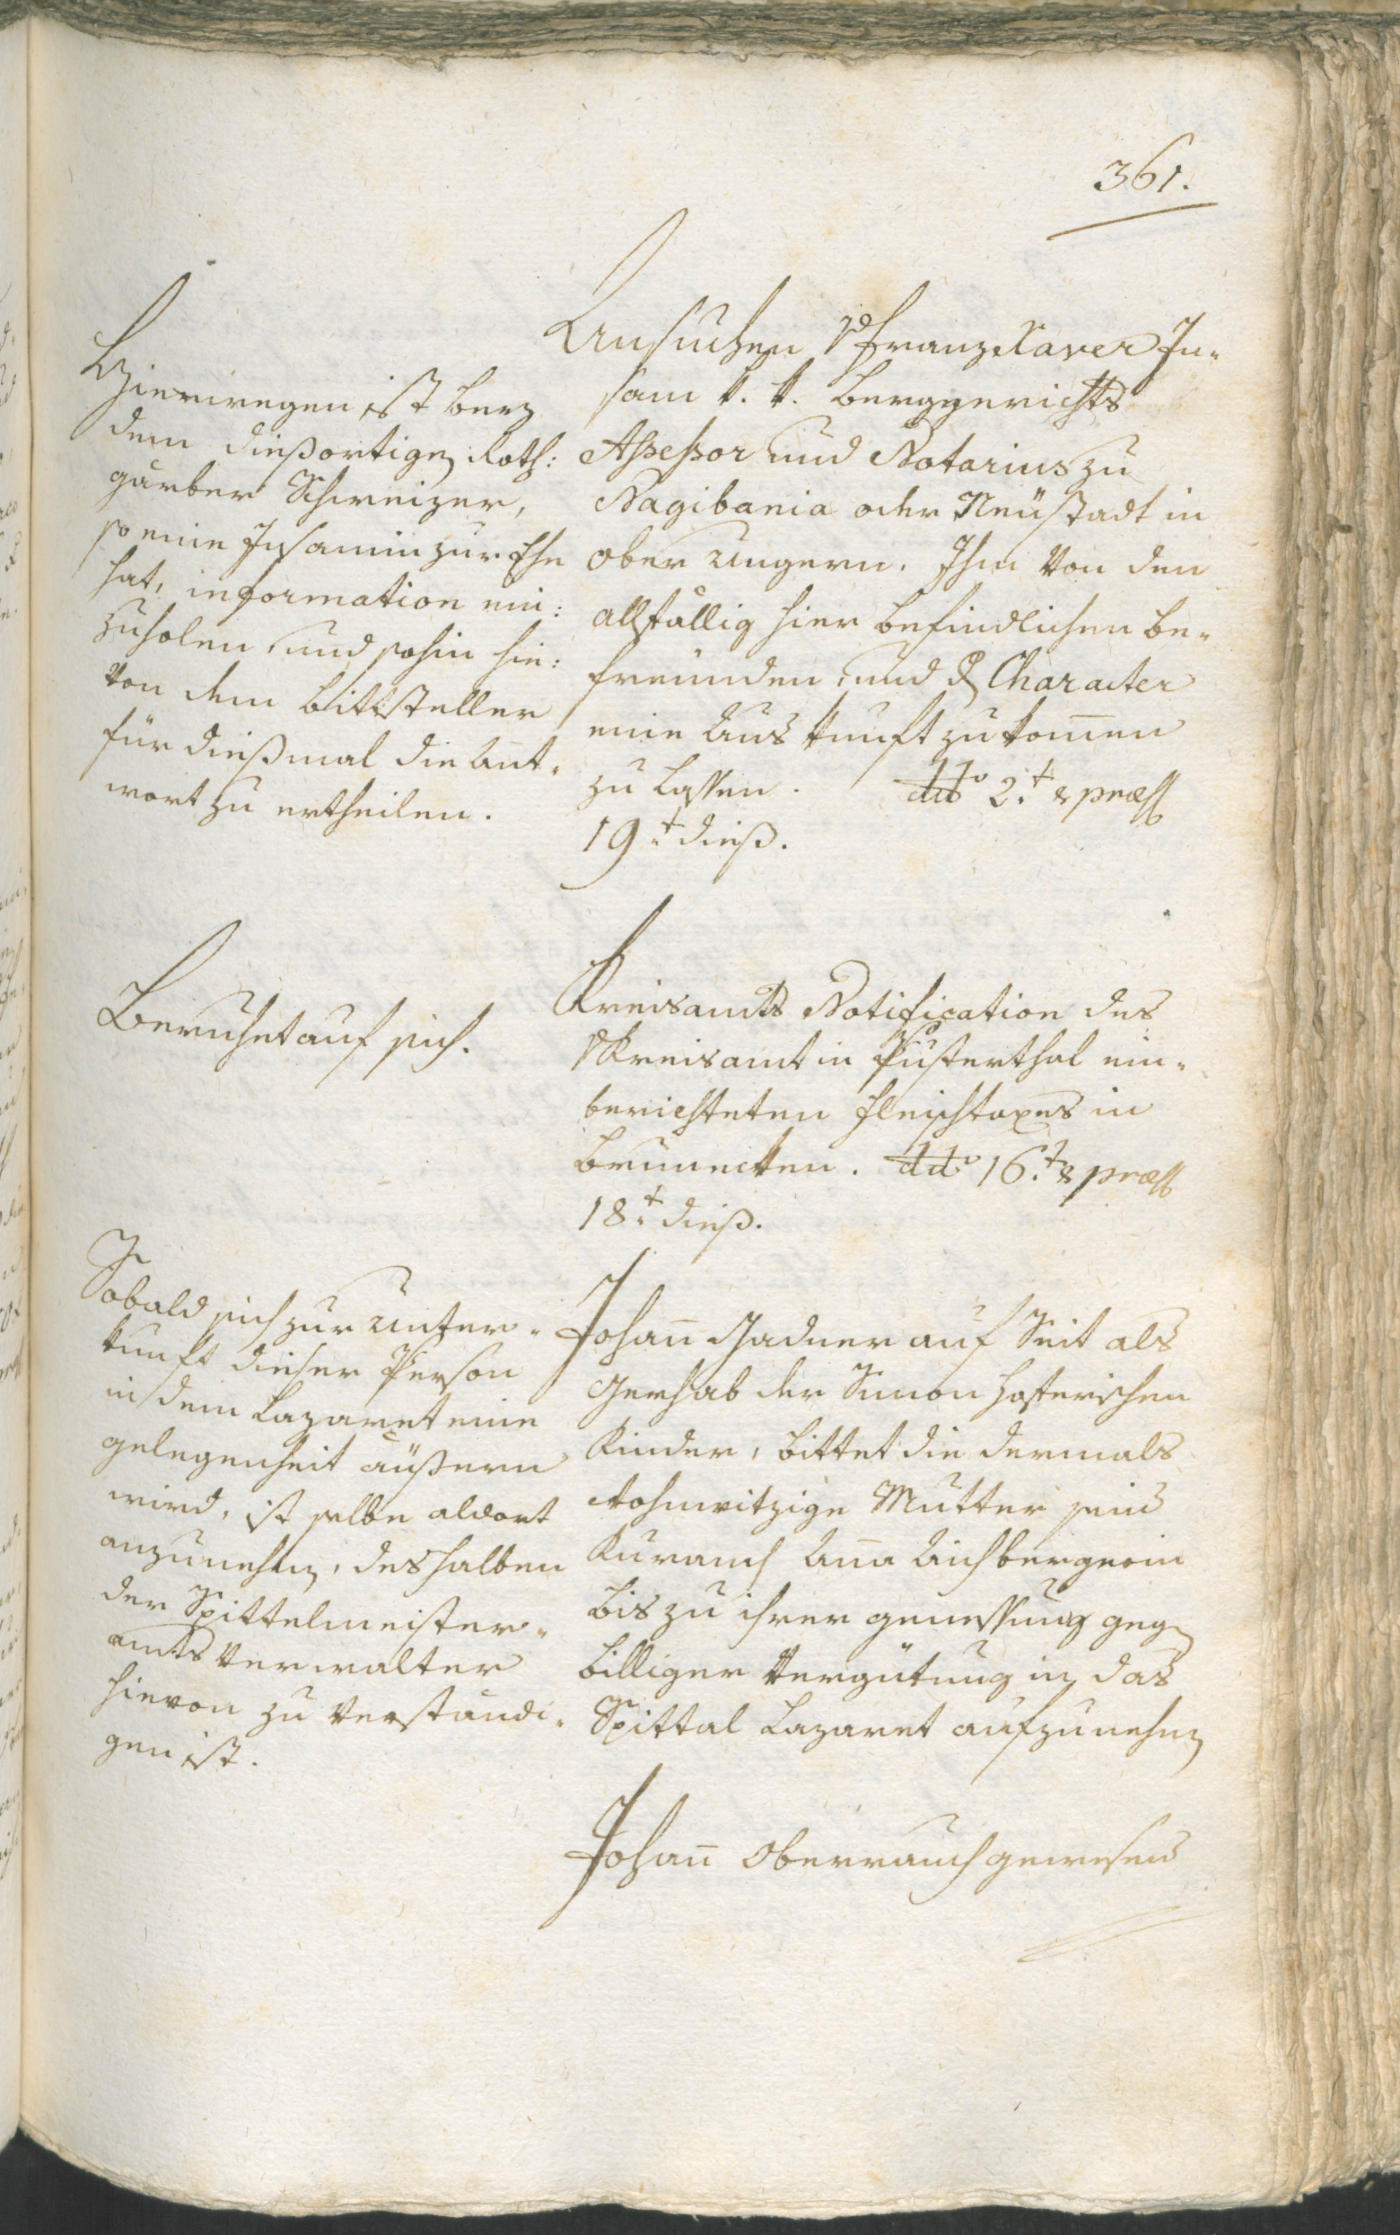 361.
Hierwegen ist bey
dem dießortigen Roth:
gärber Schweizer,
so eine Insamin zur Ehe
hat, information ein:
zuholen, und sohin hie:
von dem Bittsteller
für dießmal die Ant-
wort zu ertheilen.
Ansuchen Franz Xaver In-
sam k. k. Berggerichts
Assessor und Notarius zu
Nagibania oder Neustadt in
ober Ungern. Ihm von den
allfällig hier befindlichen be-
freunden, und Character
eine Auskunft zukomen
zu lassen. ddo 2.t & præss
19.t dieß.
Beruhet auf sich.
Kreisamts Notification des
Kreisamt in Pusterthal ein-
berichteten Fleischtaxes in
Brunecken. ddo 16.t & præss
18.t dieß.
Sobald sich zur Unter-
kunft dieser Person
in dem Lazaret eine
gelegenheit äußern
wird, ist selbe aldort
anzunehmen, deshalben
der Spittelmeister-
amts Verwalter
hievon zu verständi-
gen ist.
Johañ Gadner auf Seit als
Gerhab der Simon Hofferischen
Kinder, bittet die dermals
wahnwitzige Mutter
Anna Aichbergerin
bis zu ihrer genessung gegen
billiger Vergütung in das
Spittal Lazaret aufzunehmen
Johañ Oberrauch gewesens